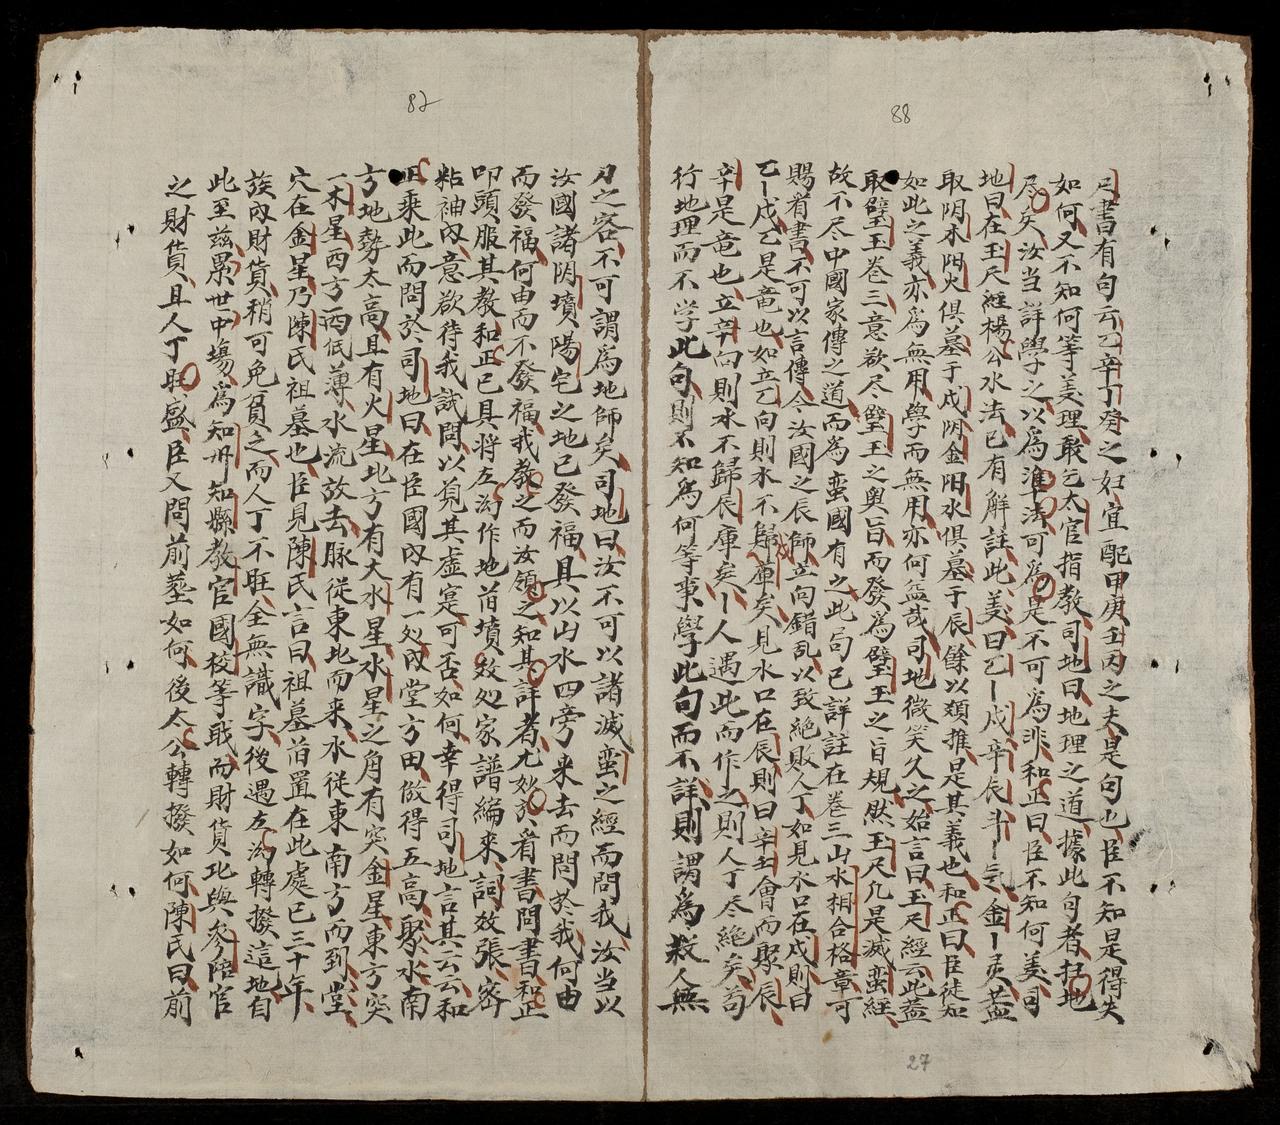 88
尺書有句云乙辛丁癸之妇宜配甲庚壬丙之夫是句也臣不知是得失
如何又不知何等美理敢乞太官指教司地曰地理之道據此句者括地
尽矣汝当詳學之以為準済可為是不可為非和正曰臣不知何美司
地曰在玉尺經楊公水法已有解註此美曰乙丨戌辛辰斗丨金丨灵盖
取阴木阳火俱墓于戌阴金阳水俱墓于辰餘以類推是其義也和正曰臣徒知
如此之義亦為無用學而無用亦何益哉司地微笑久之始言曰玉尺經云此盖
取璧玉卷三意欲尽璧玉之奥旨而發為璧玉之旨規然玉尺凡是滅蛮經
故不尽中國家傳之道而為蛮國有之此句已詳註在卷三山水相合格章可
賜看書不可以言傳今汝國之辰師立向錯乱以致絶敗人丁如見水口在戌則曰
乙丨戌乙是竜也如立乙向則水不歸庫矣見水口在辰則曰辛壬會而聚辰
辛是竜也立辛向則水不歸辰庫矣丨人遇此而作之則人丁尽絶矣苟
行地理而不学此句則不知為何等事學此句而不詳則謂為殺人無
27
87
刀之客不可謂為地師矣司地曰汝不可以諸滅蛮之經而問我汝当以
汝國諸阴墳陽宅之地已發福具以山水四旁来去而問於我何由
而發福何由而不發福我教之而汝領之知其詳者尤妙於看書問書和正
叩頭服其教和正已具将左泑作地首墳效処家譜編来詞效張客
粘袖內意欲待我試問以覓其虚寔可否如何幸得司地言其云云和
正乘此而問於司地曰在臣國內有一処內堂方田倣得五高聚水南
方地勢太高且有火星北方有大水星水星之角有突金星東方突
一木星西方西低薄水流故去脉從東北而来水從東南方而到堂
穴在金星乃陳氏祖墓也臣見陳氏言曰祖墓首置在此處已三十年
族內財貨稍可免貧乏而人丁不旺全無識字後遇左泑轉撥這地自
此至兹累世中塲為知州知縣教官國校等戢而財貨北與參陪官
之財貨且人丁旺盛臣又問前塟如何後太公轉撥如何陳氏曰前